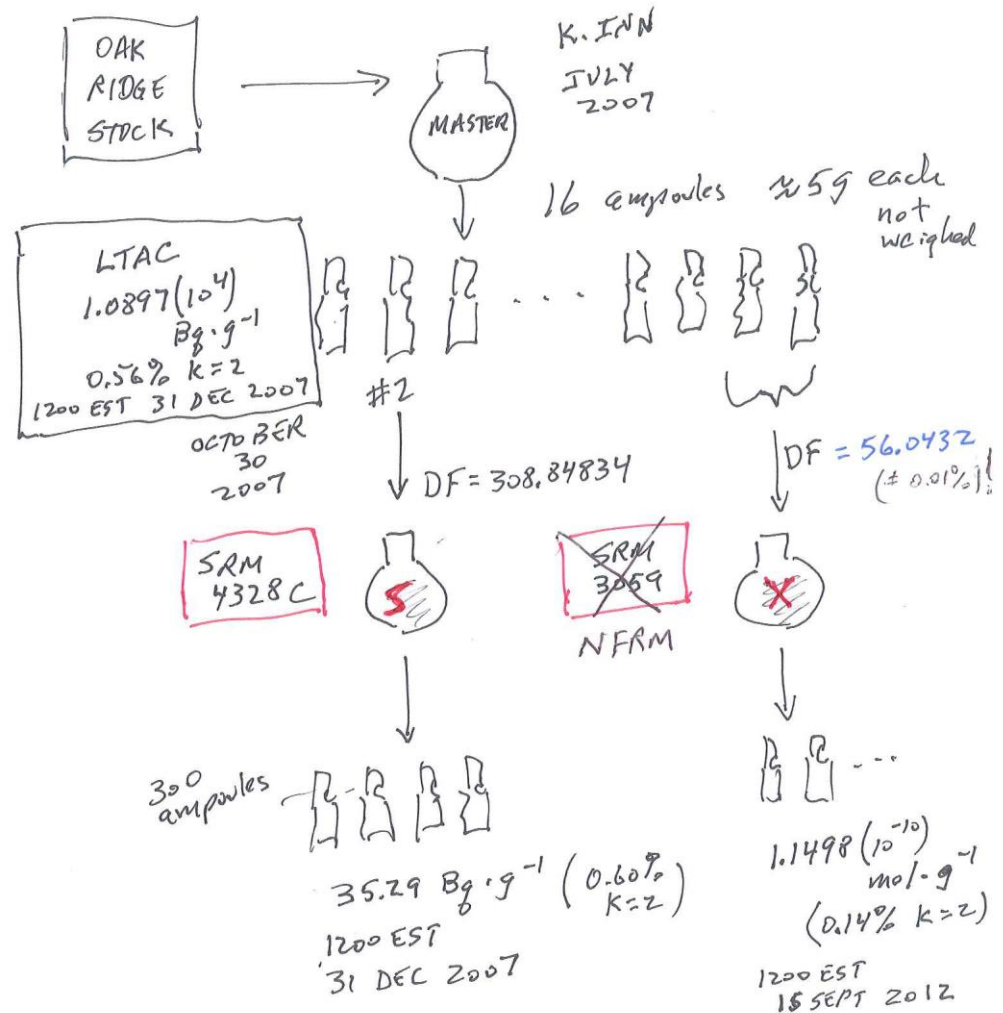 OAK
RIDGE
STOCK
MASTER
K. INN
JULY
2007
16 ampoules ≈5g each
not
weighed
LTAC
1.0897(10⁴)
Bq·g⁻¹
0.56% K=2
1200 EST 31 DEC 2007
. . .
#2
OCTOBER
30
2007
DF = 308.84834
DF = 56.0432
(± 0.01%)!
SRM
4328C
S
SRM
3059
NFRM
X
300
ampoules
...
35.29 Bq·g⁻¹ (0.60%
K=2)
1200 EST
31 DEC 2007
1.1498(10⁻¹⁰)
mol·g⁻¹
(0.14% K=2)
1200 EST
15 SEPT 2012